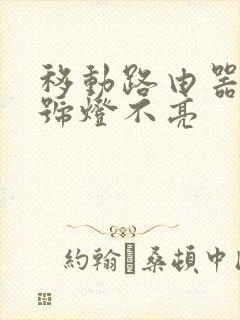 移動路由器
號燈不亮
約翰·桑頓中